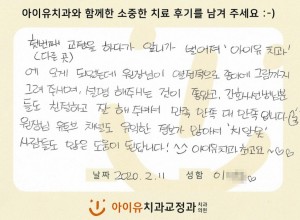 아이유치과와 함께한 소중한 치료 후기를 남겨 주세요 :-)
첫번째 교정을 하다가 앞니가 벌어져 '아이유 치과'
(다른 곳)
에 오게 되었는데 원장님이 열정적으로 종이에 그림까지
그려 주시며, 설명 해주시는 것이 좋았고, 간호사선생님분
들도 친절하고 잘 해주셔서 만족 만족 대 만족 입니다!
원장님 유튜브 채널도 유익한 정보가 많아서 '치알못'
사람들도 많은 도움이 된답니다! ^^ 아이유치과 최고요~
날짜 2020. 2. 11 성함 이
아이유치과교정과 치과의원